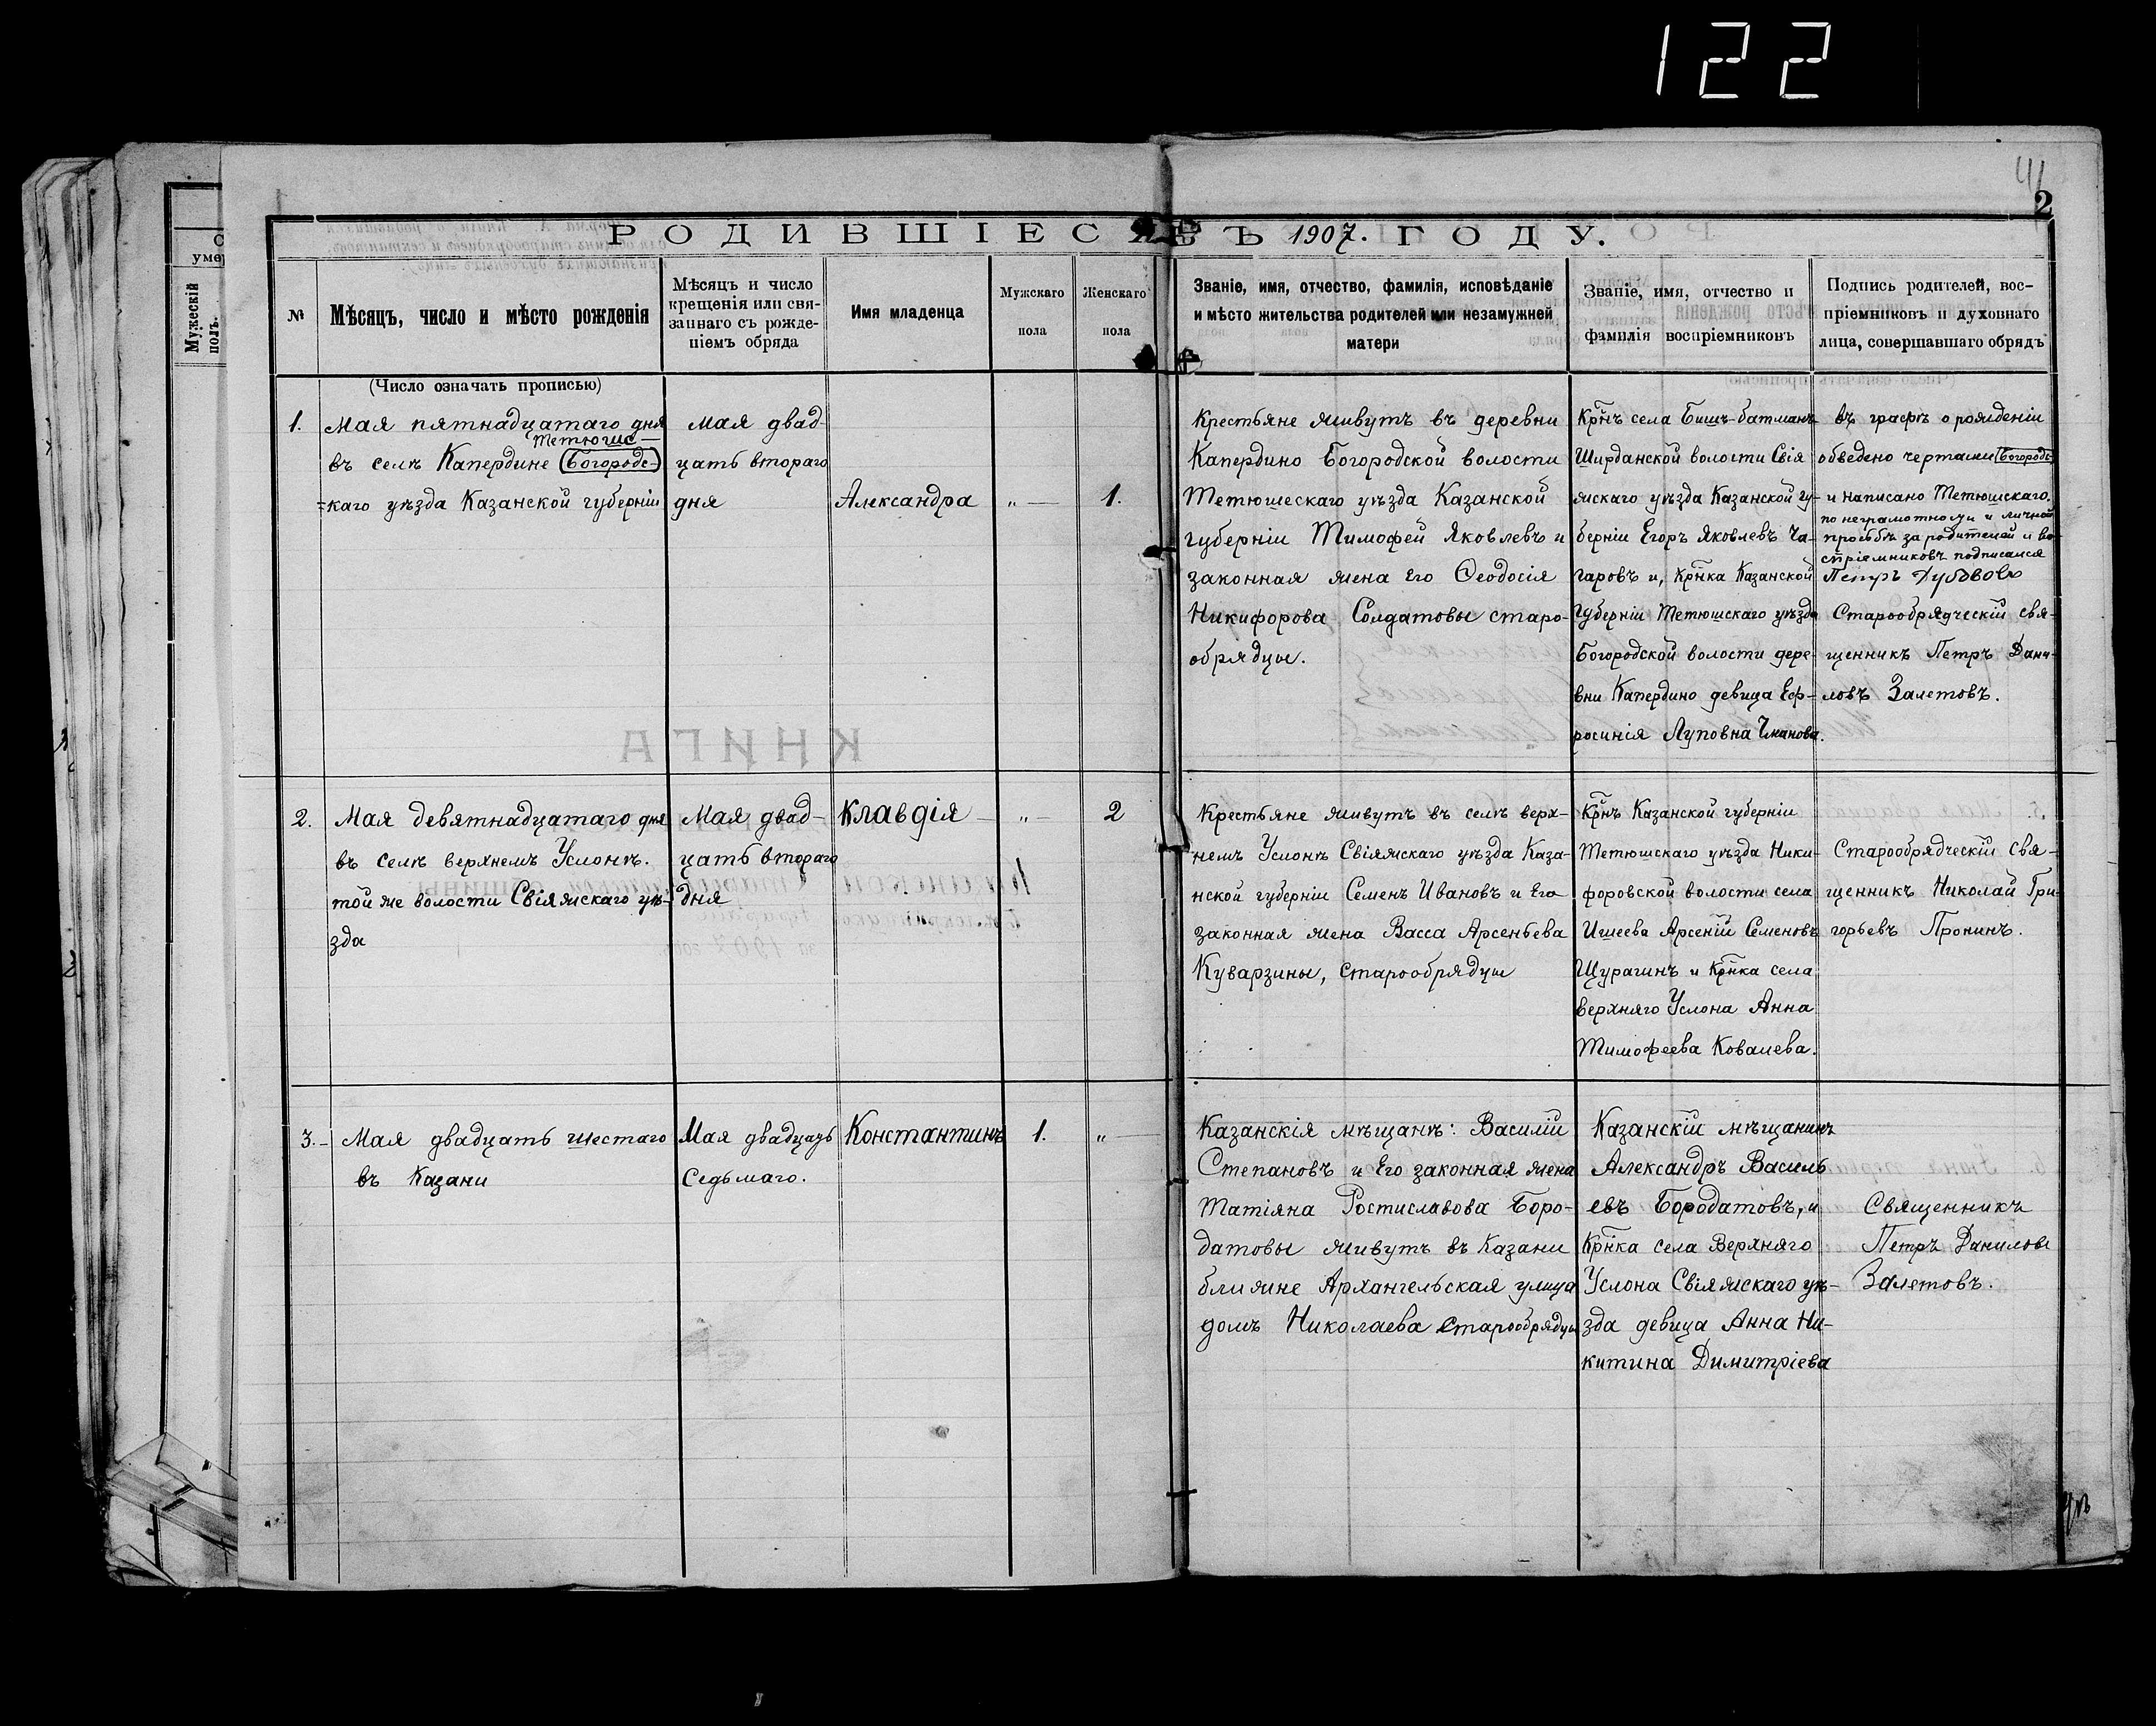 122
41
2
РОДИВШІЕСЯ ВЪ 1907. ГОДУ.
№
Мѣсяцъ, число и мѣсто рожденія
Мѣсяцъ и число
крещенія или свя-
заннаго съ рожде-
ніемъ обряда
Имя младенца
Мужскаго
пола
Женскаго
пола
Званіе, имя, отчество, фамилія, исповѣданіе
и мѣсто жительства родителей или незамужней
матери
Званіе, имя, отчество и
фамилія воспріемниковъ
Подпись родителей, вос-
пріемниковъ и духовнаго
лица, совершавшаго обрядъ
умер
Мужескій
полъ.
(Число означать прописью)
1.
Мая пятнадцатаго дня
Тетюшс-
въ селѣ Капердине (Богородс-)
=каго уѣзда Казанской губерніи
Мая двад-
цать втораго
дня
Александра
„ —
1.
Крестьяне живутъ въ деревни
Капердино Богородской волости
Тетюшескаго уѣзда Казанской
губерніи Тимофей Яковлевъ и
законная жена его Ѳеодосія
Никифорова Солдатовы старо-
обрядцы.
Крнъ села Бишъ-батманъ
Ширданской волости Свія
жскаго уѣзда Казанской гу-
берніи Егоръ Яковлевъ Ча-
гаровъ и, Крнка Казанской
Губерніи Тетюшскаго уѣзда
Богородской волости дере-
вни Капердино девица Еф-
росинія Луповна Чжанова.
въ графѣ о рожденіи
обведено чертами (Богородс-)
и написано Тетюшскаго.
по неграмотности и личной
просьбѣ за родителей и во-
спріемниковъ подписался
Петръ Дубововъ
Старообрядческій свя-
щенникъ Петръ Дани-
ловъ Залетовъ.
2.
Мая девятнадцатаго дня
въ селѣ верхнемъ Услонѣ.
той же волости Свіяжскаго уѣ-
зда
Мая двад-
цать втораго
дня
Клавдія
„ —
2
Крестьяне живутъ въ селѣ верх-
немъ Услонѣ Свіяжскаго уѣзда Каза-
нской губерніи Семенъ Ивановъ и Его
законная жена Васса Арсеньева
Куварзины, Старообрядцы
Крнъ Казанской губерніи
Тетюшскаго уѣзда Ники-
форовской волости села
Ишеева Арсеній Семеновъ
Щурагинъ и Крнка села
верхняго Услона Анна
Тимофеева Ковалева.
Старообрядческій свя-
щенникъ Николай Гри-
горьевъ Пронинъ.
3.-
Мая двадцать шестаго
въ Казани
Мая двадцать
Седьмаго.
Константинъ
1.
„ —
Казанскія мѣщанѣ: Василій
Степановъ и Его законная жена
Татіяна Ростиславова Боро-
датовы живутъ въ Казани
ближне Архангельская улица
домъ Николаева Старообрядцы
Казанскій мѣщанинъ
Александръ Василь
евъ Бородатовъ, и
Крнка села Верхняго
Услона Свіяжскаго уѣ-
зда девица Анна Ни-
китина Димитріева
Священникъ
Петръ Даниловъ
Залетовъ.